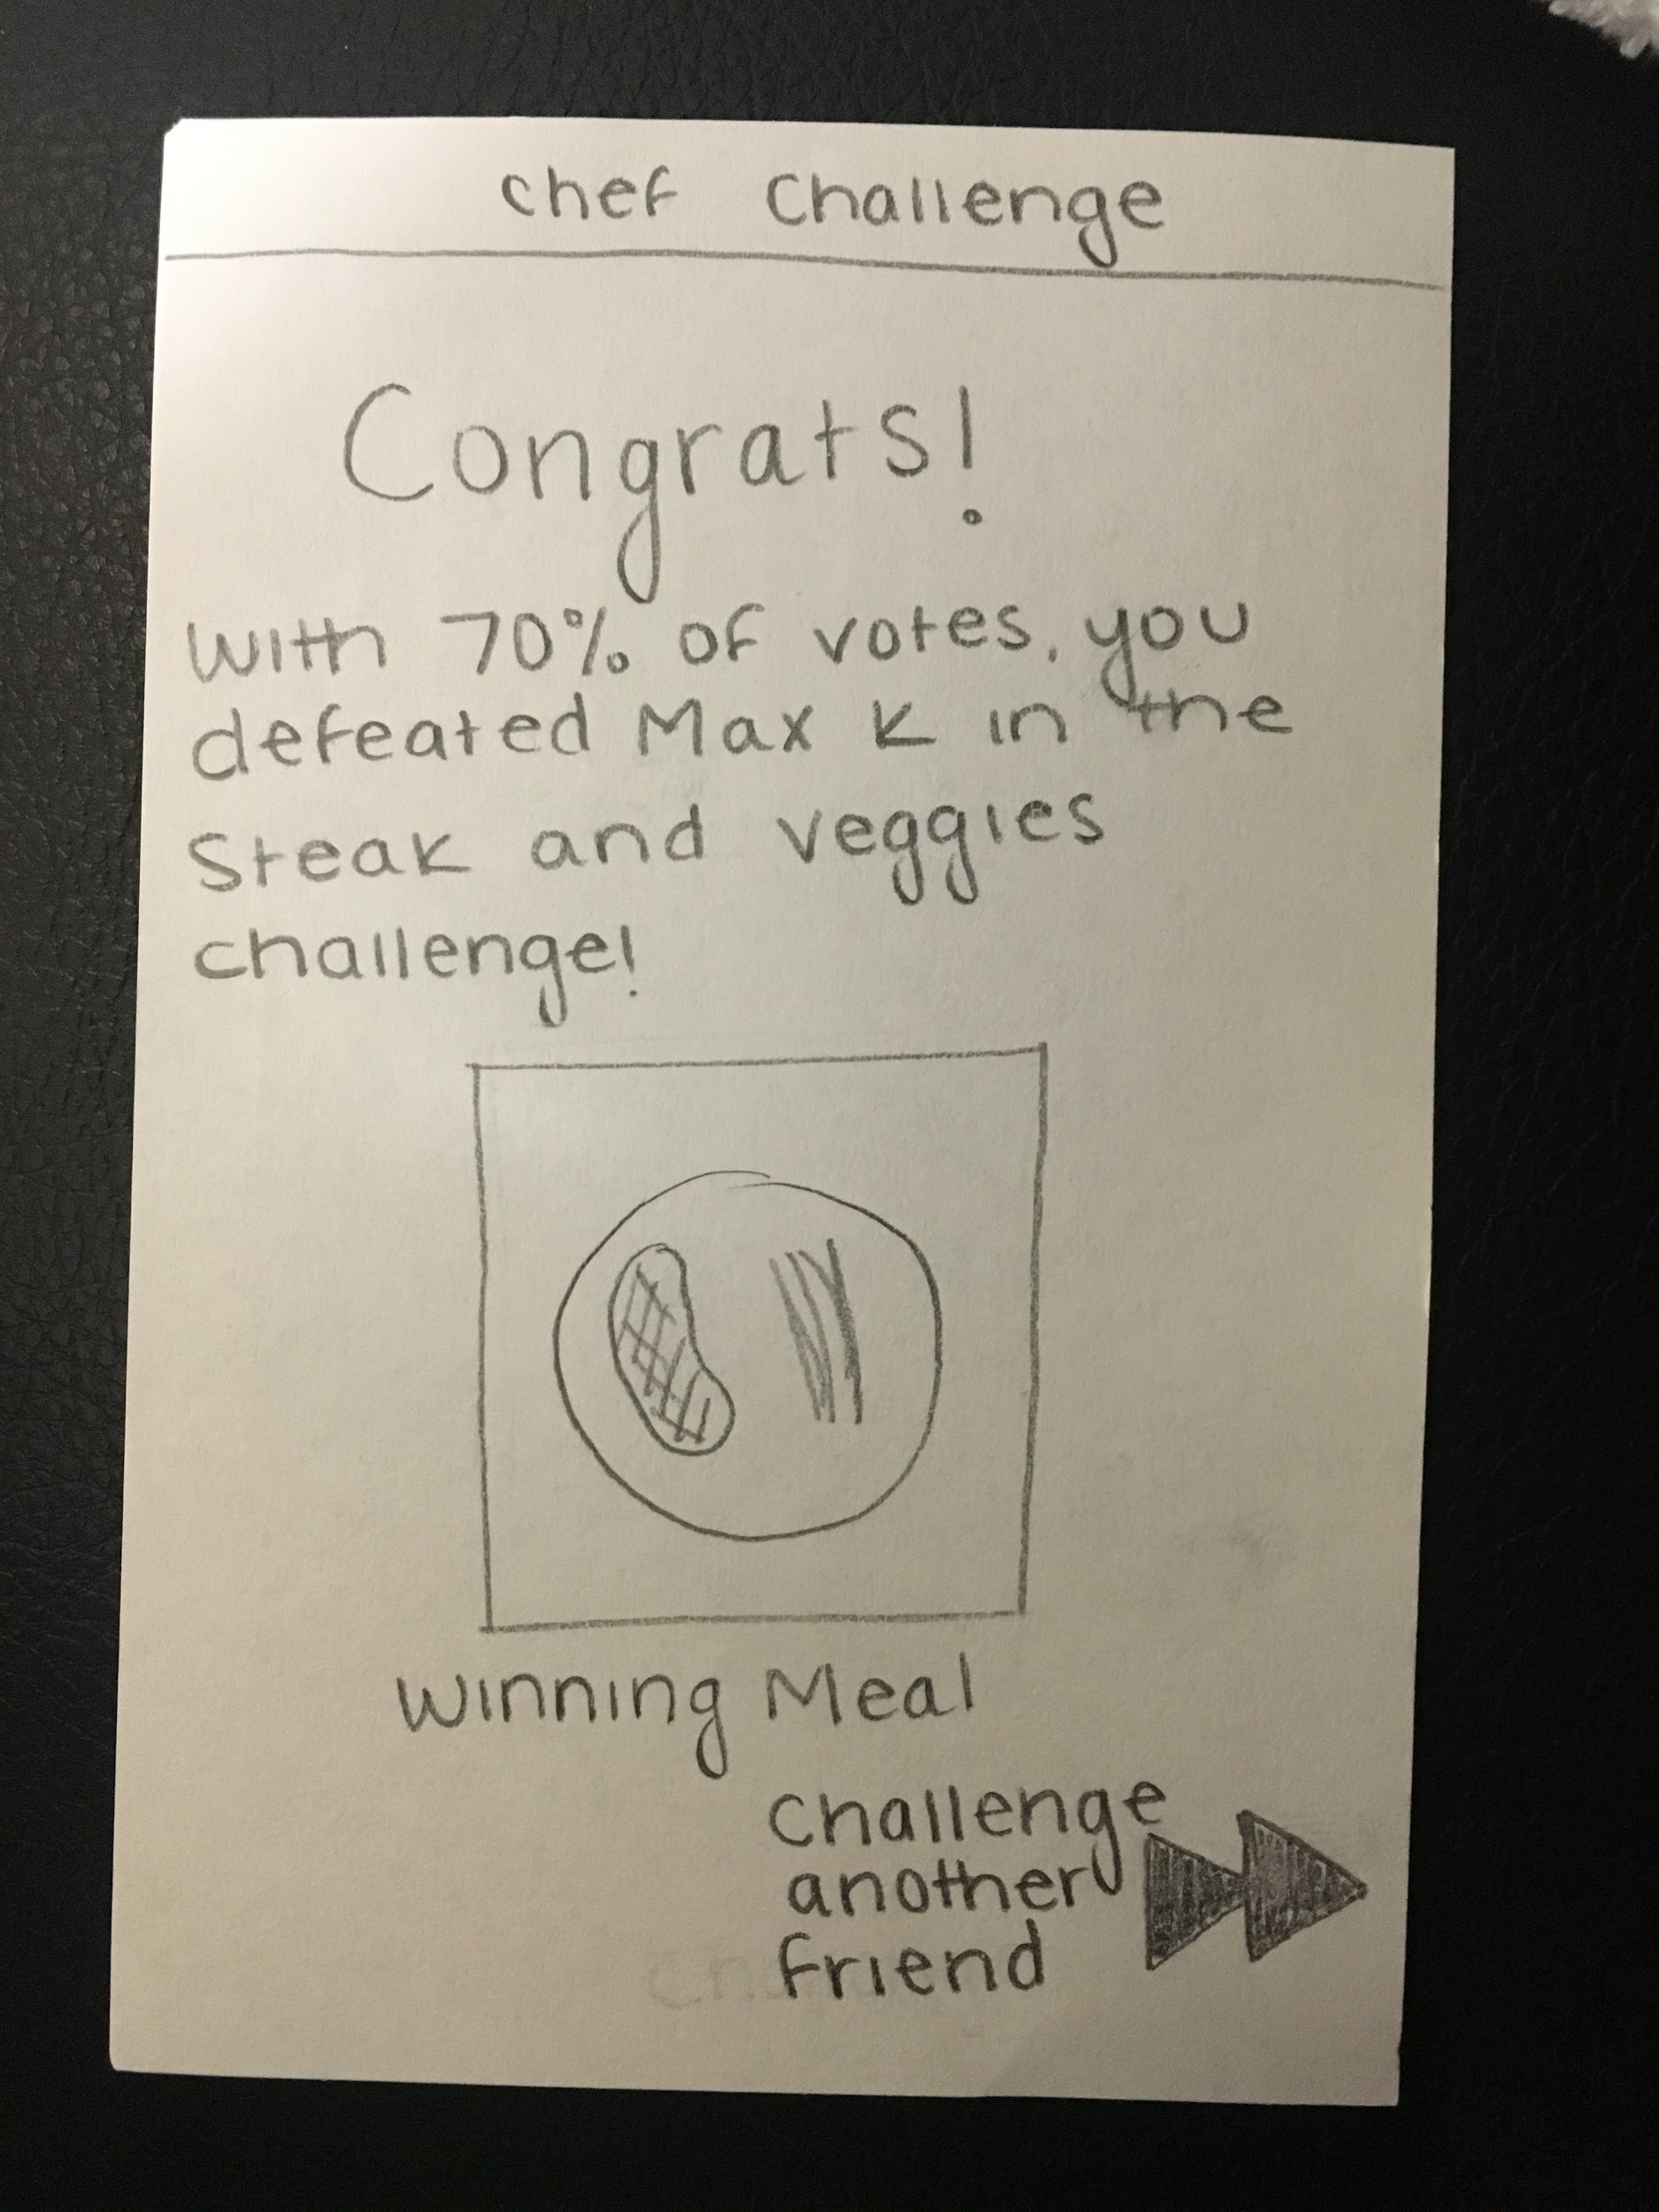 chef challenge
Congrats!
with 70% of votes, you
defeated Max K in the
Steak and veggies
challenge!
Winning Meal
challenge
another
friend